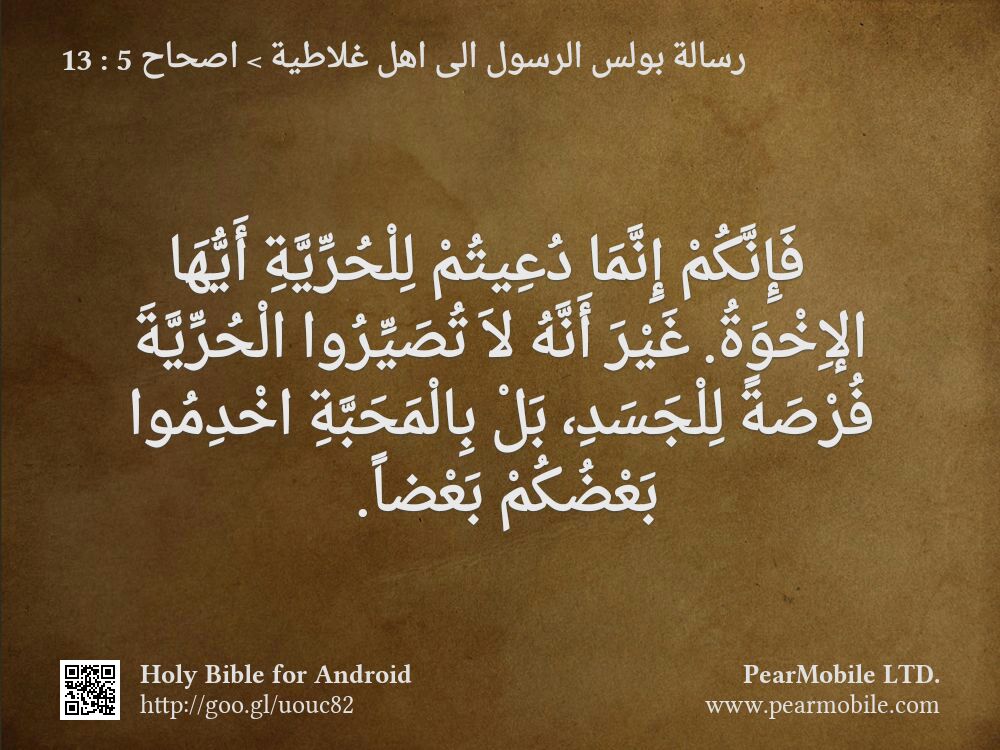 رسالة بولس الرسول الى اهل غلاطية > اصحاح 5 : 13
فَإِنَّكُمْ إِنَّمَا دُعِيتُمْ لِلْحُرِّيَّةِ أَيُّهَا
الإِخْوَةُ. غَيْرَ أَنَّهُ لاَ تُصَيِّرُوا الْحُرِّيَّةَ
فُرْصَةً لِلْجَسَدِ، بَلْ بِالْمَحَبَّةِ اخْدِمُوا
بَعْضُكُمْ بَعْضاً.
Holy Bible for Android
http://goo.gl/uouc82
PearMobile LTD.
www.pearmobile.com